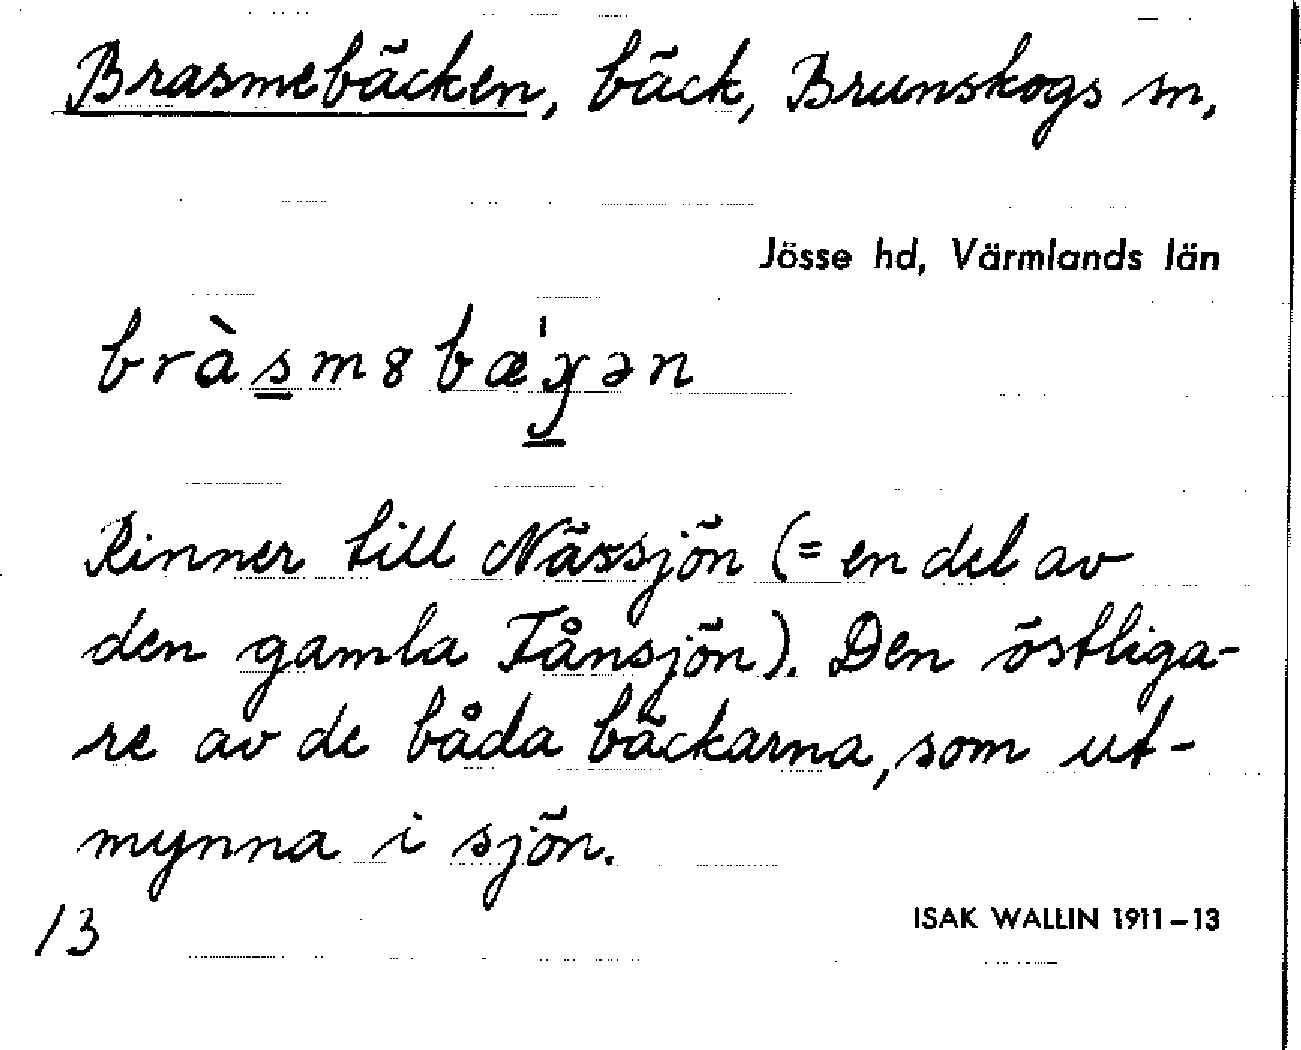 Brasmebäcken, bäck, Brunskogs sn,
Jösse hd, Värmlands län
bràsm8bæ̀ɣən
Rinner till Nässjön (= en del av
den gamla Tånsjön). Den östliga-
re av de båda bäckarna, som ut-
mynna i sjön.
13
ISAK WALLIN 1911–13